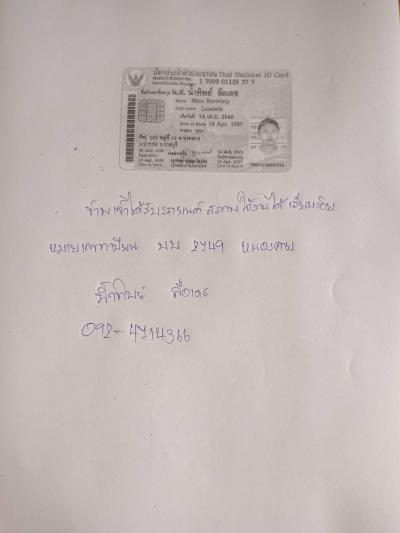 บัตรประจำตัวประชาชน Thai National ID Card
เลขประจำตัวประชาชน 1 7099 01125 37 7
Identification Number
ชื่อตัวและชื่อสกุล น.ส. น้ำทิพย์ ลือเดช
Name Miss Namthip
Last name Luedech
เกิดวันที่ 14 เม.ย. 2540
Date of Birth 14 Apr. 1997
ศาสนา พุทธ
ข้าพเจ้าได้รับรถยนต์ สภาพใช้งานได้ เรียบร้อย
หมายเลขทะเบียน บบ 2749 หนองคาย
น้ำทิพย์ ลือเดช
092-4714366